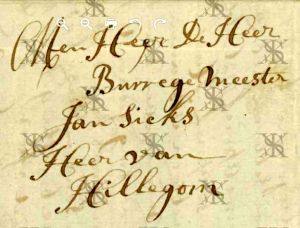 Men Heer De Heer
Burregemeester
Jan Six
Heer van
Hillegom